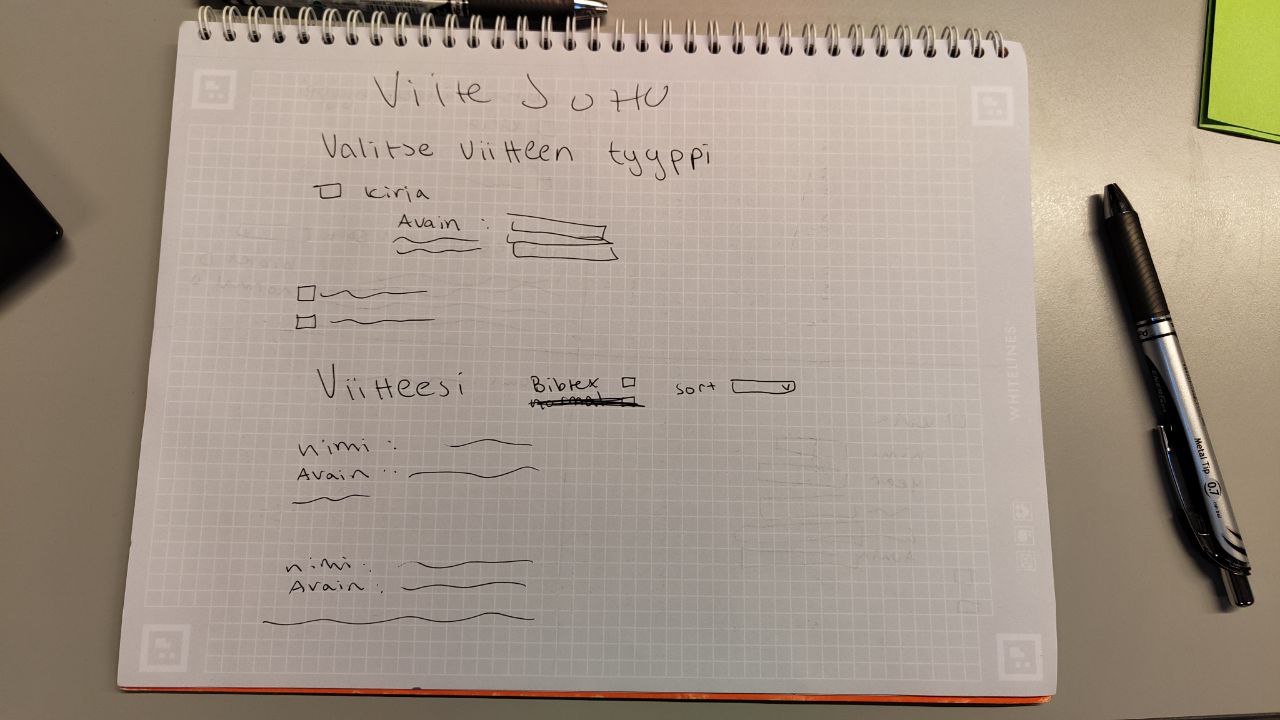 Viite JUHU
Valitse viitteen tyyppi
kirja
Avain :
Viitteesi
Bibtex
sort
nimi :
Avain :
nimi :
Avain :
WHITELINES
Metal Tip 0.7